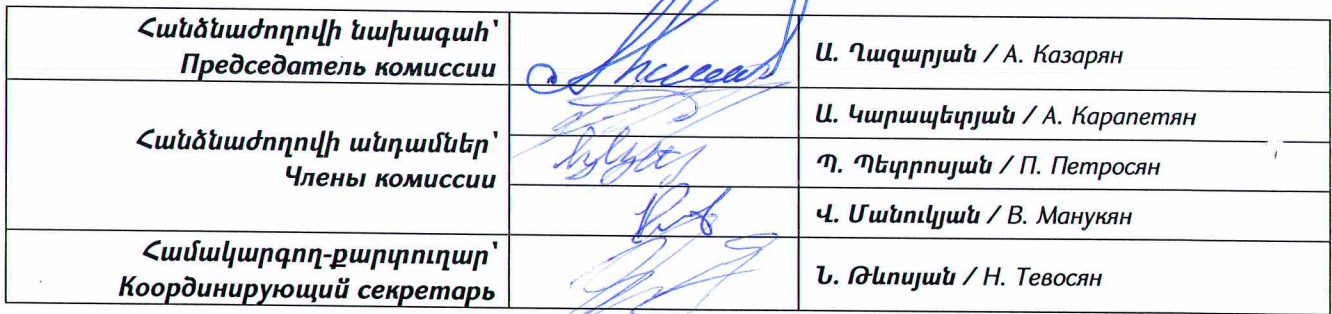 Հանձնաժողովի նախագահ՝
Председатель комиссии
Ա. Ղազարյան / А. Казарян
Հանձնաժողովի անդամներ՝
Члены комиссии
Ա. Կարապետյան / А. Карапетян
Պ. Պետրոսյան / П. Петросян
Վ. Մանուկյան / В. Манукян
Համակարգող-քարտուղար՝
Координирующий секретарь
Ն. Թևոսյան / Н. Тевосян